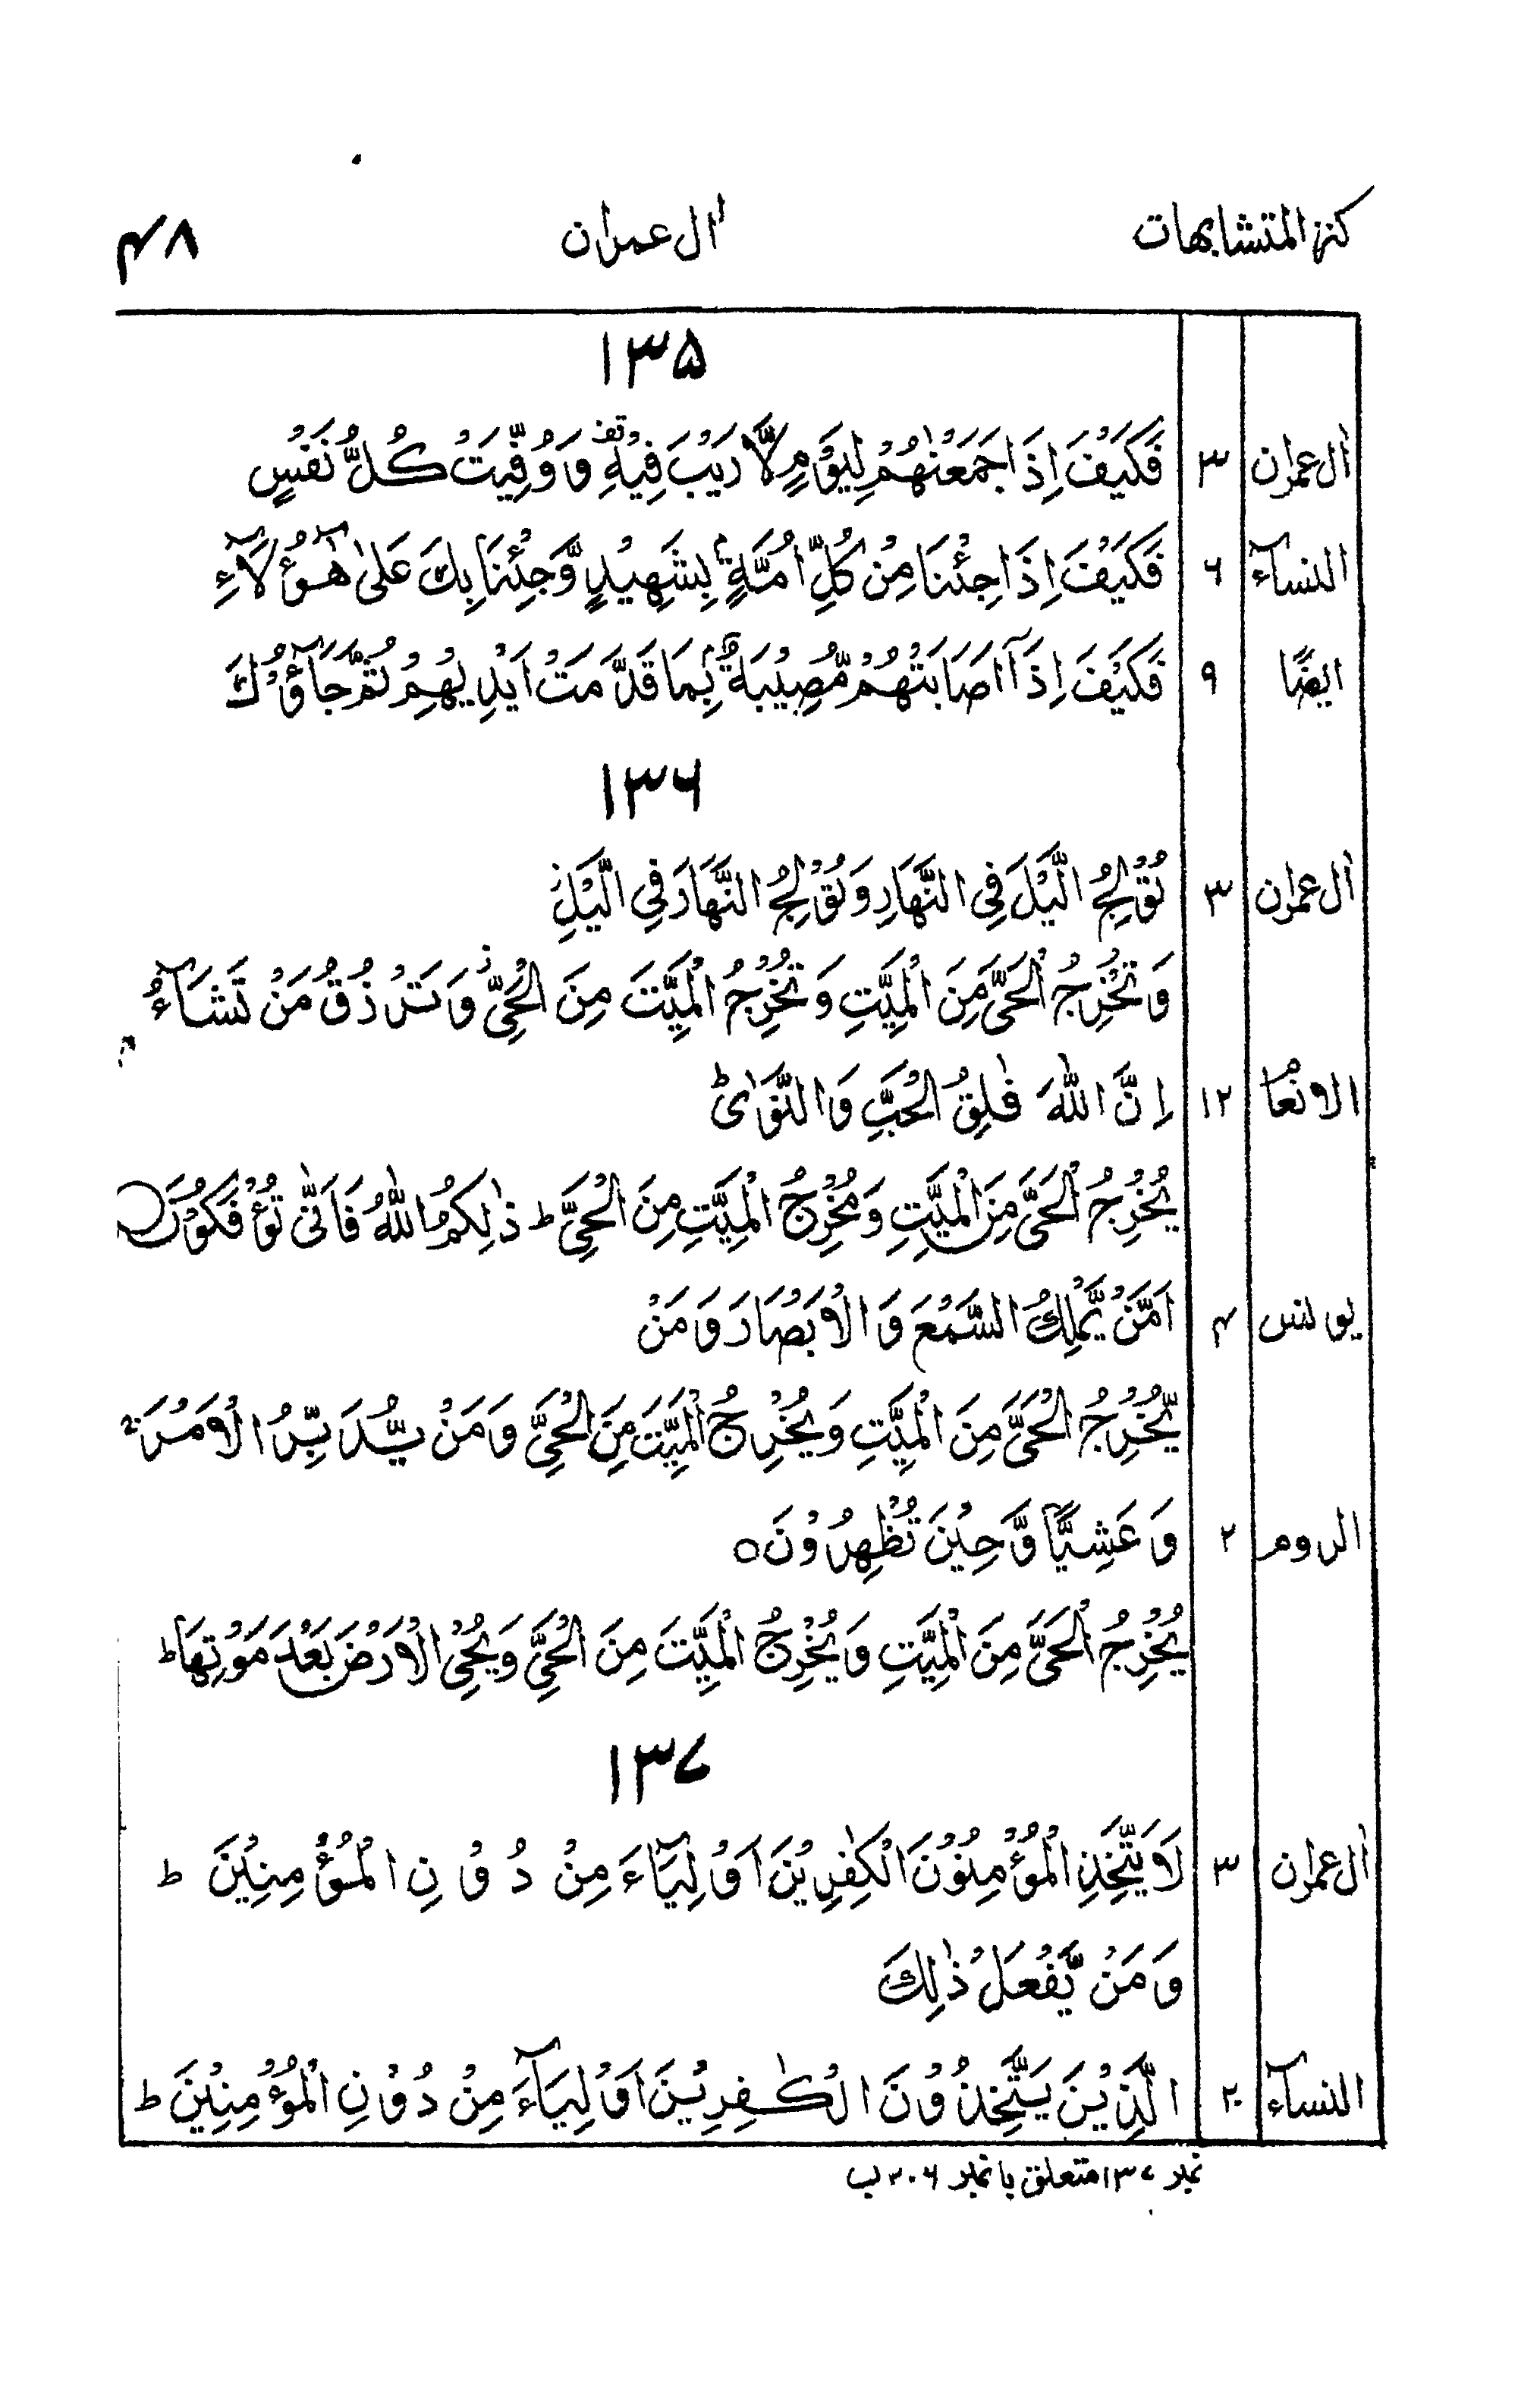 كنز المتشابهات اٰل عمران ۴۸
۱۳۵
اٰل عمرٰن ۳ فَكَيْفَ اِذَا جَمَعْنٰهُمْ لِيَوْمٍ لَّا رَيْبَ فِيْهِ وَوُفِّيَتْ كُلُّ نَفْسٍ
النسآء ۶ فَكَيْفَ اِذَا جِئْنَا مِنْ كُلِّ اُمَّةٍۭ بِشَهِيْدٍ وَّجِئْنَا بِكَ عَلٰى هٰٓؤُلَآءِ
ايضًا ۹ فَكَيْفَ اِذَآ اَصَابَتْهُمْ مُّصِيْبَةٌۢ بِمَا قَدَّمَتْ اَيْدِيْهِمْ ثُمَّ جَآؤُوْكَ
۱۳۶
اٰل عمرٰن ۳ تُوْلِجُ الَّيْلَ فِى النَّهَارِ وَتُوْلِجُ النَّهَارَ فِى الَّيْلِ
وَتُخْرِجُ الْحَىَّ مِنَ الْمَيِّتِ وَتُخْرِجُ الْمَيِّتَ مِنَ الْحَىِّ وَتَرْزُقُ مَنْ تَشَآءُ
الانعام ۱۲ اِنَّ اللّٰهَ فٰلِقُ الْحَبِّ وَالنَّوٰىؕ
يُخْرِجُ الْحَىَّ مِنَ الْمَيِّتِ وَمُخْرِجُ الْمَيِّتِ مِنَ الْحَىِّؕ ذٰلِكُمُ اللّٰهُ فَاَنّٰى تُؤْفَكُوْنَ
يونس ۴ اَمَّنْ يَّمْلِكُ السَّمْعَ وَالْاَبْصَارَ وَمَنْ
يُّخْرِجُ الْحَىَّ مِنَ الْمَيِّتِ وَيُخْرِجُ الْمَيِّتَ مِنَ الْحَىِّ وَمَنْ يُّدَبِّرُ الْاَمْرَ
الروم ۲ وَعَشِيًّا وَّحِيْنَ تُظْهِرُوْنَ○
يُخْرِجُ الْحَىَّ مِنَ الْمَيِّتِ وَيُخْرِجُ الْمَيِّتَ مِنَ الْحَىِّ وَيُحْىِ الْاَرْضَ بَعْدَ مَوْتِهَاؕ
۱۳۷
اٰل عمرٰن ۳ لَا يَتَّخِذِ الْمُؤْمِنُوْنَ الْكٰفِرِيْنَ اَوْلِيَآءَ مِنْ دُوْنِ الْمُؤْمِنِيْنَؕ
وَمَنْ يَّفْعَلْ ذٰلِكَ
النسآء ۲۰ الَّذِيْنَ يَتَّخِذُوْنَ الْكٰفِرِيْنَ اَوْلِيَآءَ مِنْ دُوْنِ الْمُؤْمِنِيْنَؕ
نمبر ۱۳۷ متعلق با نمبر ۲۰۶ ب